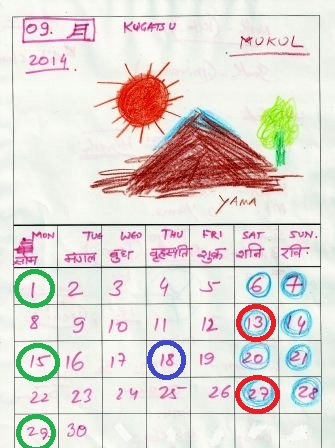 09. 月 KUGATSU
2014 MUKUL
YAMA
MON TUE WED THU FRI SAT SUN.
सोम मंगल बुध वृहस्पति शुक्र शनि रवि
1 2 3 4 5 6 7
8 9 10 11 12 13 14
15 16 17 18 19 20 21
22 23 24 25 26 27 28
29 30